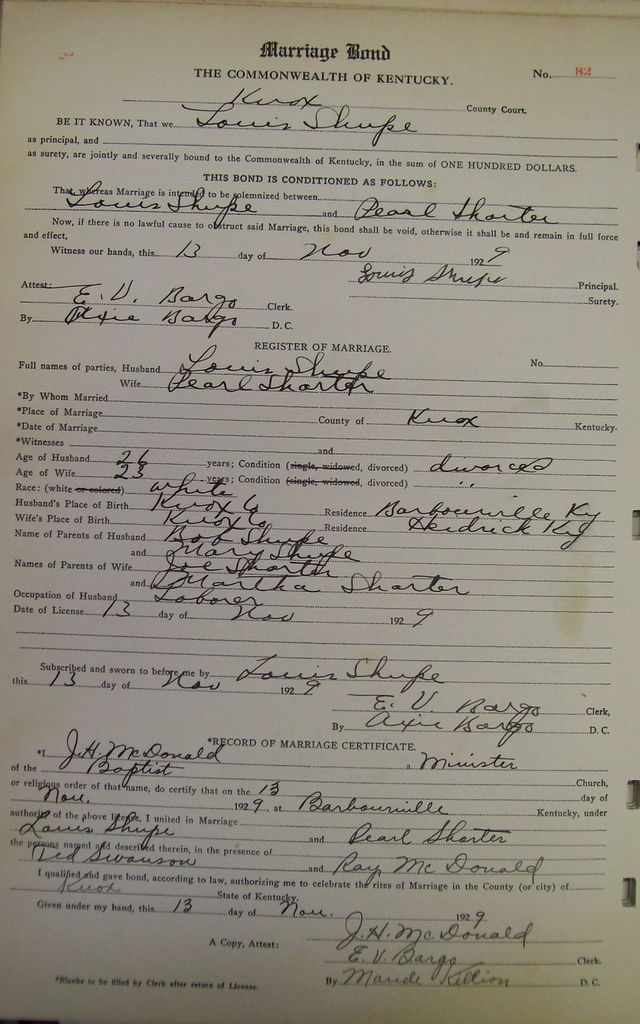 Marriage Bond
THE COMMONWEALTH OF KENTUCKY.
No. 82
Knox County Court.
BE IT KNOWN, That we Louis Shupe
as principal, and
as surety, are jointly and severally bound to the Commonwealth of Kentucky, in the sum of ONE HUNDRED DOLLARS.
THIS BOND IS CONDITIONED AS FOLLOWS:
That, whereas Marriage is intended to be solemnized between
Louis Shupe and Pearl Sharter
Now, if there is no lawful cause to obstruct said Marriage, this bond shall be void, otherwise it shall be and remain in full force
and effect,
Witness our hands, this 13 day of Nov 1929
Louis Shupe Principal.
Surety.
Attest: E. V. Bargo Clerk.
By Axie Bargo D. C.
REGISTER OF MARRIAGE.
Full names of parties, Husband Louis Shupe No.
Wife Pearl Sharter
*By Whom Married
*Place of Marriage County of Knox Kentucky.
*Date of Marriage
*Witnesses and
Age of Husband 26 years; Condition (single, widowed, divorced) divorced
Age of Wife 23 years; Condition (single, widowed, divorced) "
Race: (white or colored) white
Husband's Place of Birth Knox Co Residence Barbourville Ky
Wife's Place of Birth Knox Co Residence Heidrick Ky
Name of Parents of Husband Bob Shupe
and Mary Shupe
Names of Parents of Wife Joe Sharter
and Martha Sharter
Occupation of Husband Laborer
Date of License 13 day of Nov 1929
Subscribed and sworn to before me by Louis Shupe
this 13 day of Nov 1929
E. V. Bargo Clerk,
By Axie Bargo D. C.
*RECORD OF MARRIAGE CERTIFICATE.
*I J. H. McDonald a Minister
of the Baptist Church,
or religious order of that name, do certify that on the 13 day of
Nov. 1929, at Barbourville Kentucky, under
authority of the above license, I united in Marriage
Louis Shupe and Pearl Sharter
the persons named and described therein, in the presence of
Ted Swanson and Ray McDonald
I qualified and gave bond, according to law, authorizing me to celebrate the rites of Marriage in the County (or city) of
Knox State of Kentucky.
Given under my hand, this 13 day of Nov. 1929
J. H. McDonald
A Copy, Attest: E. V. Bargo Clerk.
By Maude Killion D. C.
*Blanks to be filled by Clerk after return of License.